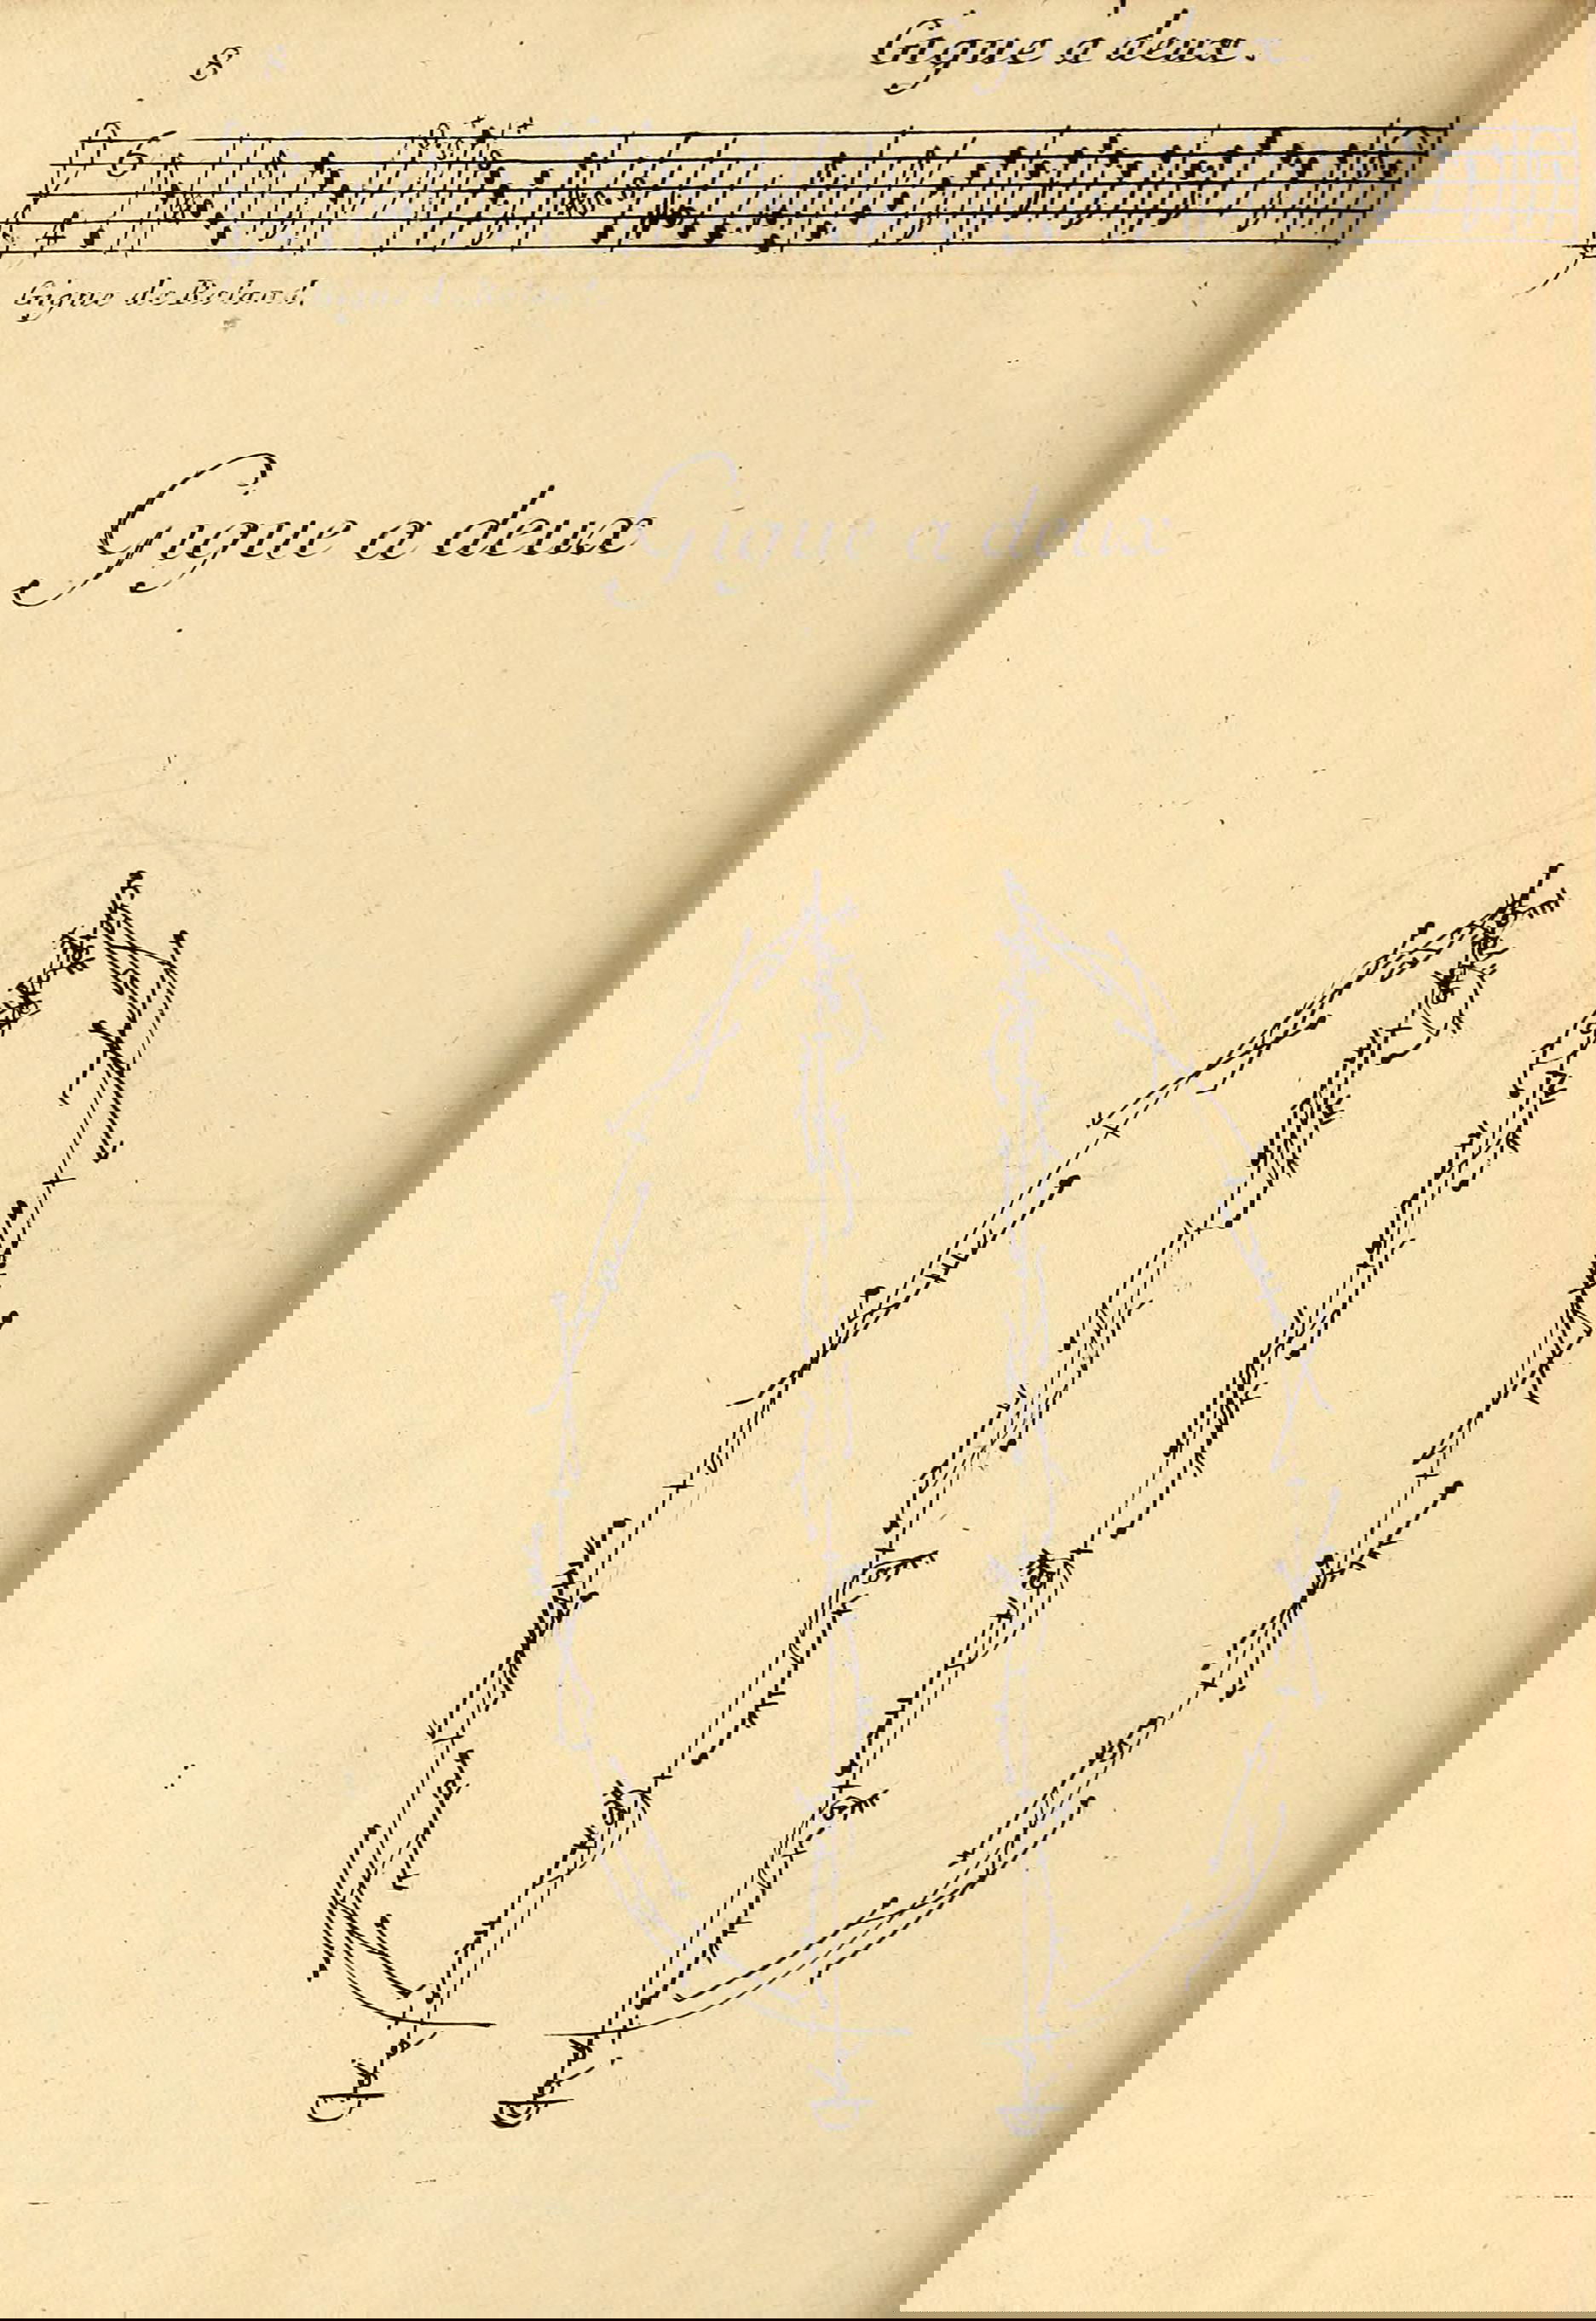 8
Gigue a deux.
Gigue de Roland.
Gigue a deux